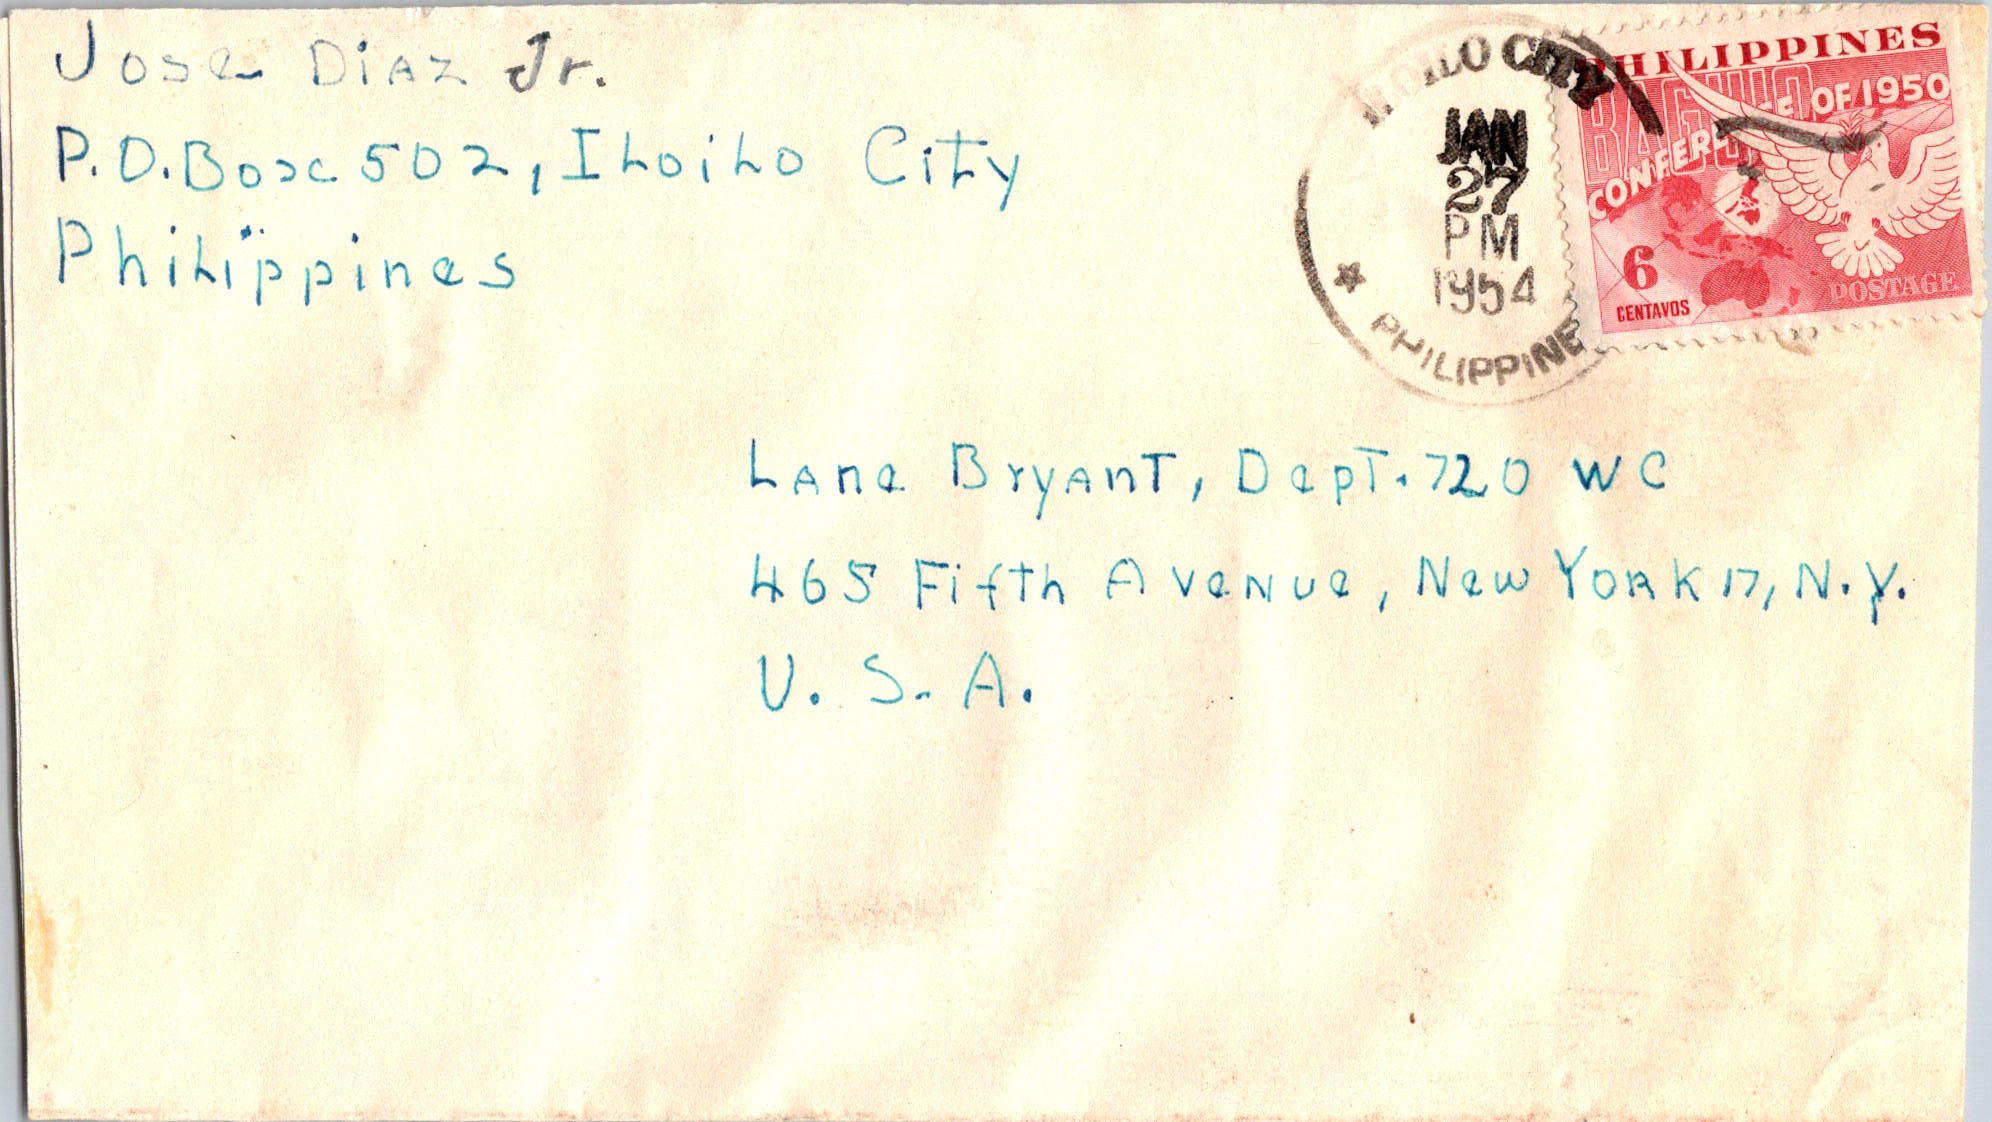 Jose Diaz Jr.
P.O. Box 502, Iloilo City
Philippines
ILOILO CITY
JAN
27
PM
1954
PHILIPPINE
PHILIPPINES
BAGUIO
CONFERENCE OF 1950
6
CENTAVOS
POSTAGE
Lane Bryant, Dept. 720 WC
465 Fifth Avenue, New York 17, N.Y.
U. S. A.